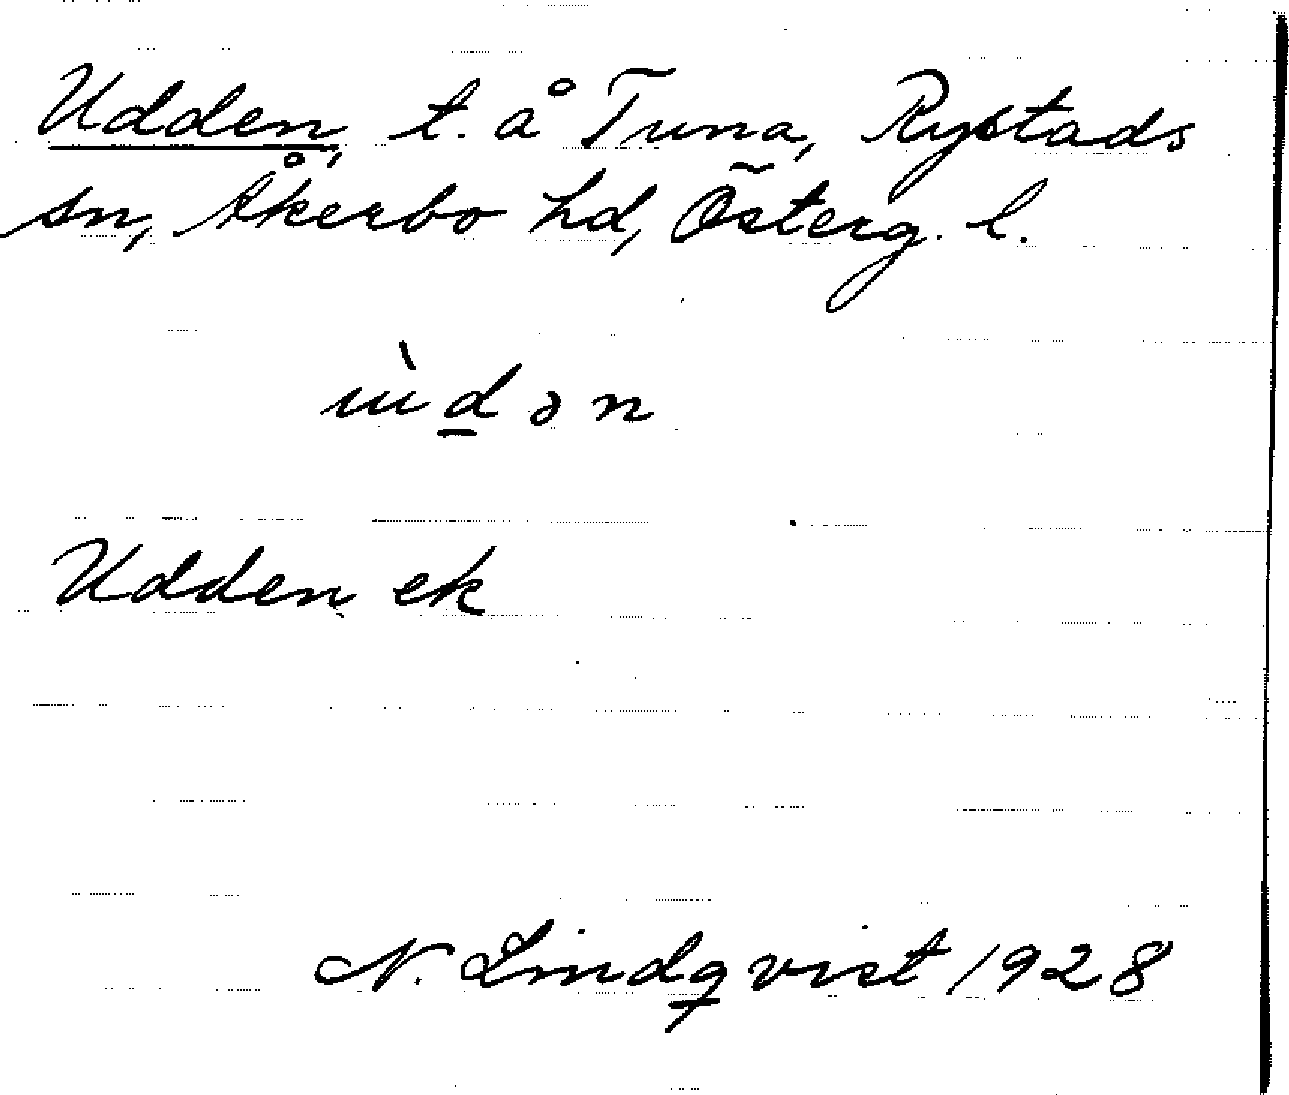 Udden, t. å Tuna, Rystads
sn, Åkerbo hd, Österg. l.
ùd̲ən
Udden ek
N. Lindqvist 1928